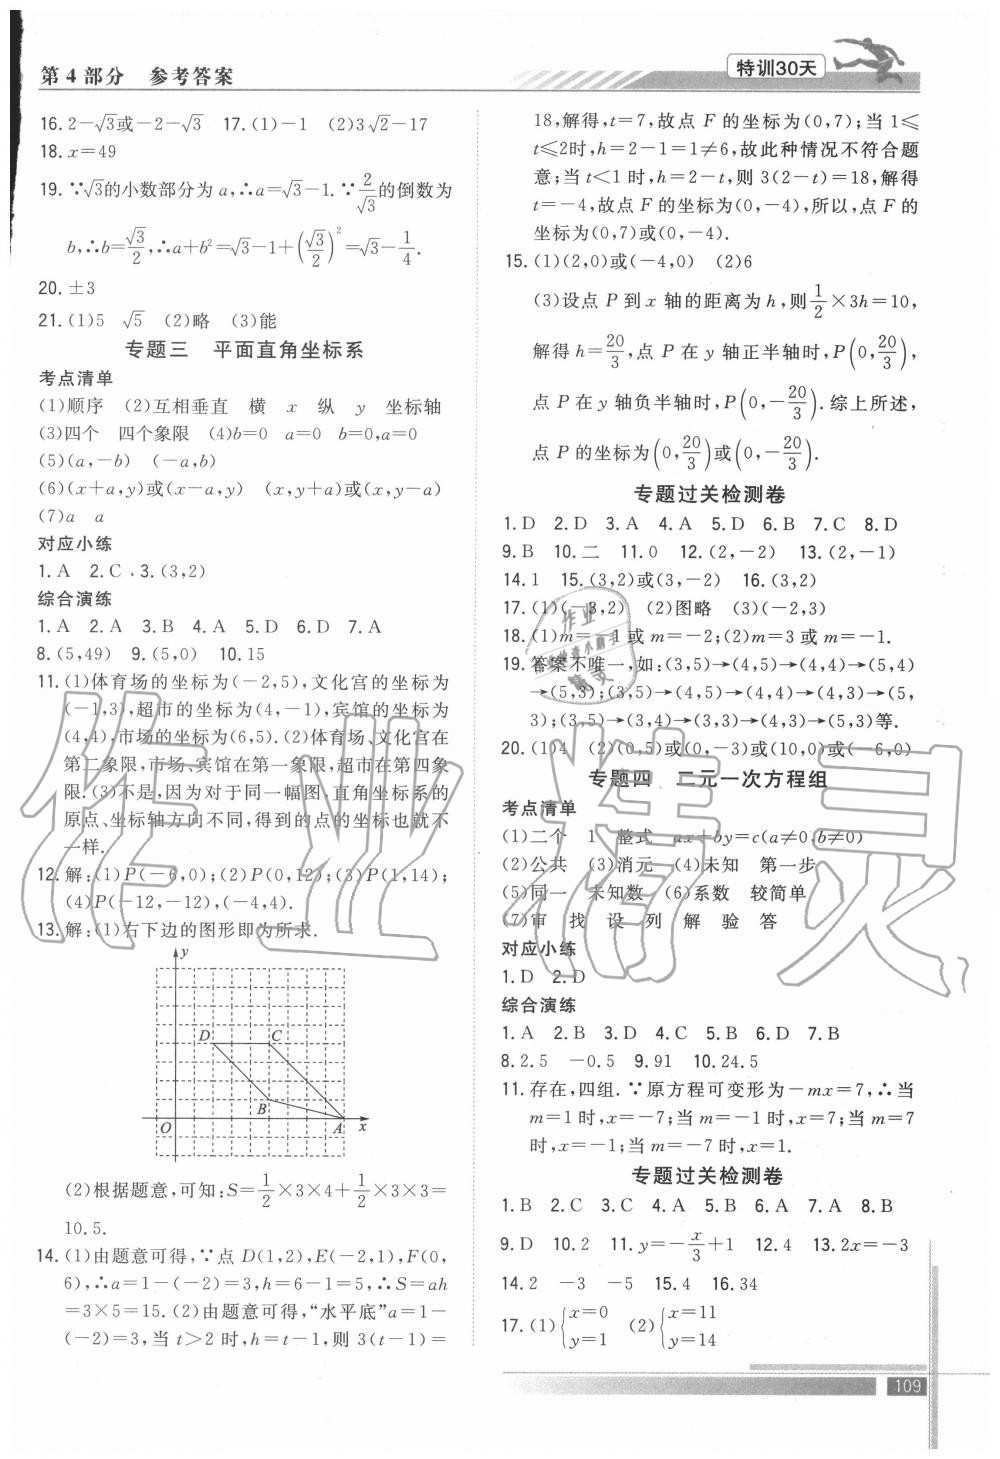 第4部分 参考答案
特训30天
16. 2-√3或-2-√3 17. (1)-1 (2)3√2-17
18. x=49
19. ∵√3的小数部分为a,∴a=√3-1. ∵2/√3的倒数为
b,∴b=√3/2,∴a+b²=√3-1+(√3/2)²=√3-1/4.
20. ±3
21. (1)5 √5 (2)略 (3)能
专题三 平面直角坐标系
考点清单
(1)顺序 (2)互相垂直 横 x 纵 y 坐标轴
(3)四个 四个象限 (4)b=0 a=0 b=0,a=0
(5)(a,-b) (-a,b)
(6)(x+a,y)或(x-a,y) (x,y+a)或(x,y-a)
(7)a a
对应小练
1. A 2. C 3. (3,2)
综合演练
1. A 2. A 3. B 4. A 5. D 6. D 7. A
8. (5,49) 9. (5,0) 10. 15
11. (1)体育场的坐标为(-2,5),文化宫的坐标为
(-1,3),超市的坐标为(4,-1),宾馆的坐标为
(4,4),市场的坐标为(6,5). (2)体育场、文化宫在
第二象限,市场、宾馆在第一象限,超市在第四象
限. (3)不是,因为对于同一幅图,直角坐标系的
原点、坐标轴方向不同,得到的点的坐标也就不
一样.
12. 解:(1)P(-6,0);(2)P(0,12);(3)P(1,14);
(4)P(-12,-12),(-4,4).
13. 解:(1)右下边的图形即为所求.
y
D C
B
O A x
(2)根据题意,可知:S=1/2×3×4+1/2×3×3=
10.5.
14. (1)由题意可得,∵点D(1,2),E(-2,1),F(0,
6),∴a=1-(-2)=3,h=6-1=5,∴S=ah
=3×5=15. (2)由题意可得,“水平底”a=1-
(-2)=3,当t>2时,h=t-1,则3(t-1)=
18,解得,t=7,故点F的坐标为(0,7);当1≤
t≤2时,h=2-1=1≠6,故此种情况不符合题
意;当t<1时,h=2-t,则3(2-t)=18,解得
t=-4,故点F的坐标为(0,-4),所以,点F的
坐标为(0,7)或(0,-4).
15. (1)(2,0)或(-4,0) (2)6
(3)设点P到x轴的距离为h,则1/2×3h=10,
解得h=20/3,点P在y轴正半轴时,P(0,20/3),
点P在y轴负半轴时,P(0,-20/3). 综上所述,
点P的坐标为(0,20/3)或(0,-20/3).
专题过关检测卷
1. D 2. D 3. A 4. A 5. D 6. B 7. C 8. D
9. B 10. 二 11. 0 12. (2,-2) 13. (2,-1)
14. 1 15. (3,2)或(3,-2) 16. (3,2)
17. (1)(-3,2) (2)图略 (3)(-2,3)
18. (1)m=-1或m=-2;(2)m=3或m=-1.
19. 答案不唯一,如:(3,5)→(4,5)→(4,4)→(5,4)
→(5,3);(3,5)→(4,5)→(4,4)→(4,3)→(5,
3);(3,5)→(3,4)→(3,3)→(4,3)→(5,3)等.
20. (1)4 (2)(0,5)或(0,-3)或(10,0)或(-6,0)
专题四 二元一次方程组
考点清单
(1)二个 1 整式 ax+by=c(a≠0,b≠0)
(2)公共 (3)消元 (4)未知 第一步
(5)同一 未知数 (6)系数 较简单
(7)审 找 设 列 解 验 答
对应小练
1. D 2. D
综合演练
1. A 2. B 3. D 4. C 5. B 6. D 7. B
8. 2.5 -0.5 9. 91 10. 24.5
11. 存在,四组. ∵原方程可变形为-mx=7,∴当
m=1时,x=-7;当m=-1时,x=7;当m=7
时,x=-1;当m=-7时,x=1.
专题过关检测卷
1. B 2. C 3. C 4. A 5. B 6. A 7. A 8. B
9. D 10. 2 11. y=-x/3+1 12. 4 13. 2x=-3
14. 2 -3 -5 15. 4 16. 34
17. (1){x=0 y=1 (2){x=11 y=14
109
作业精灵